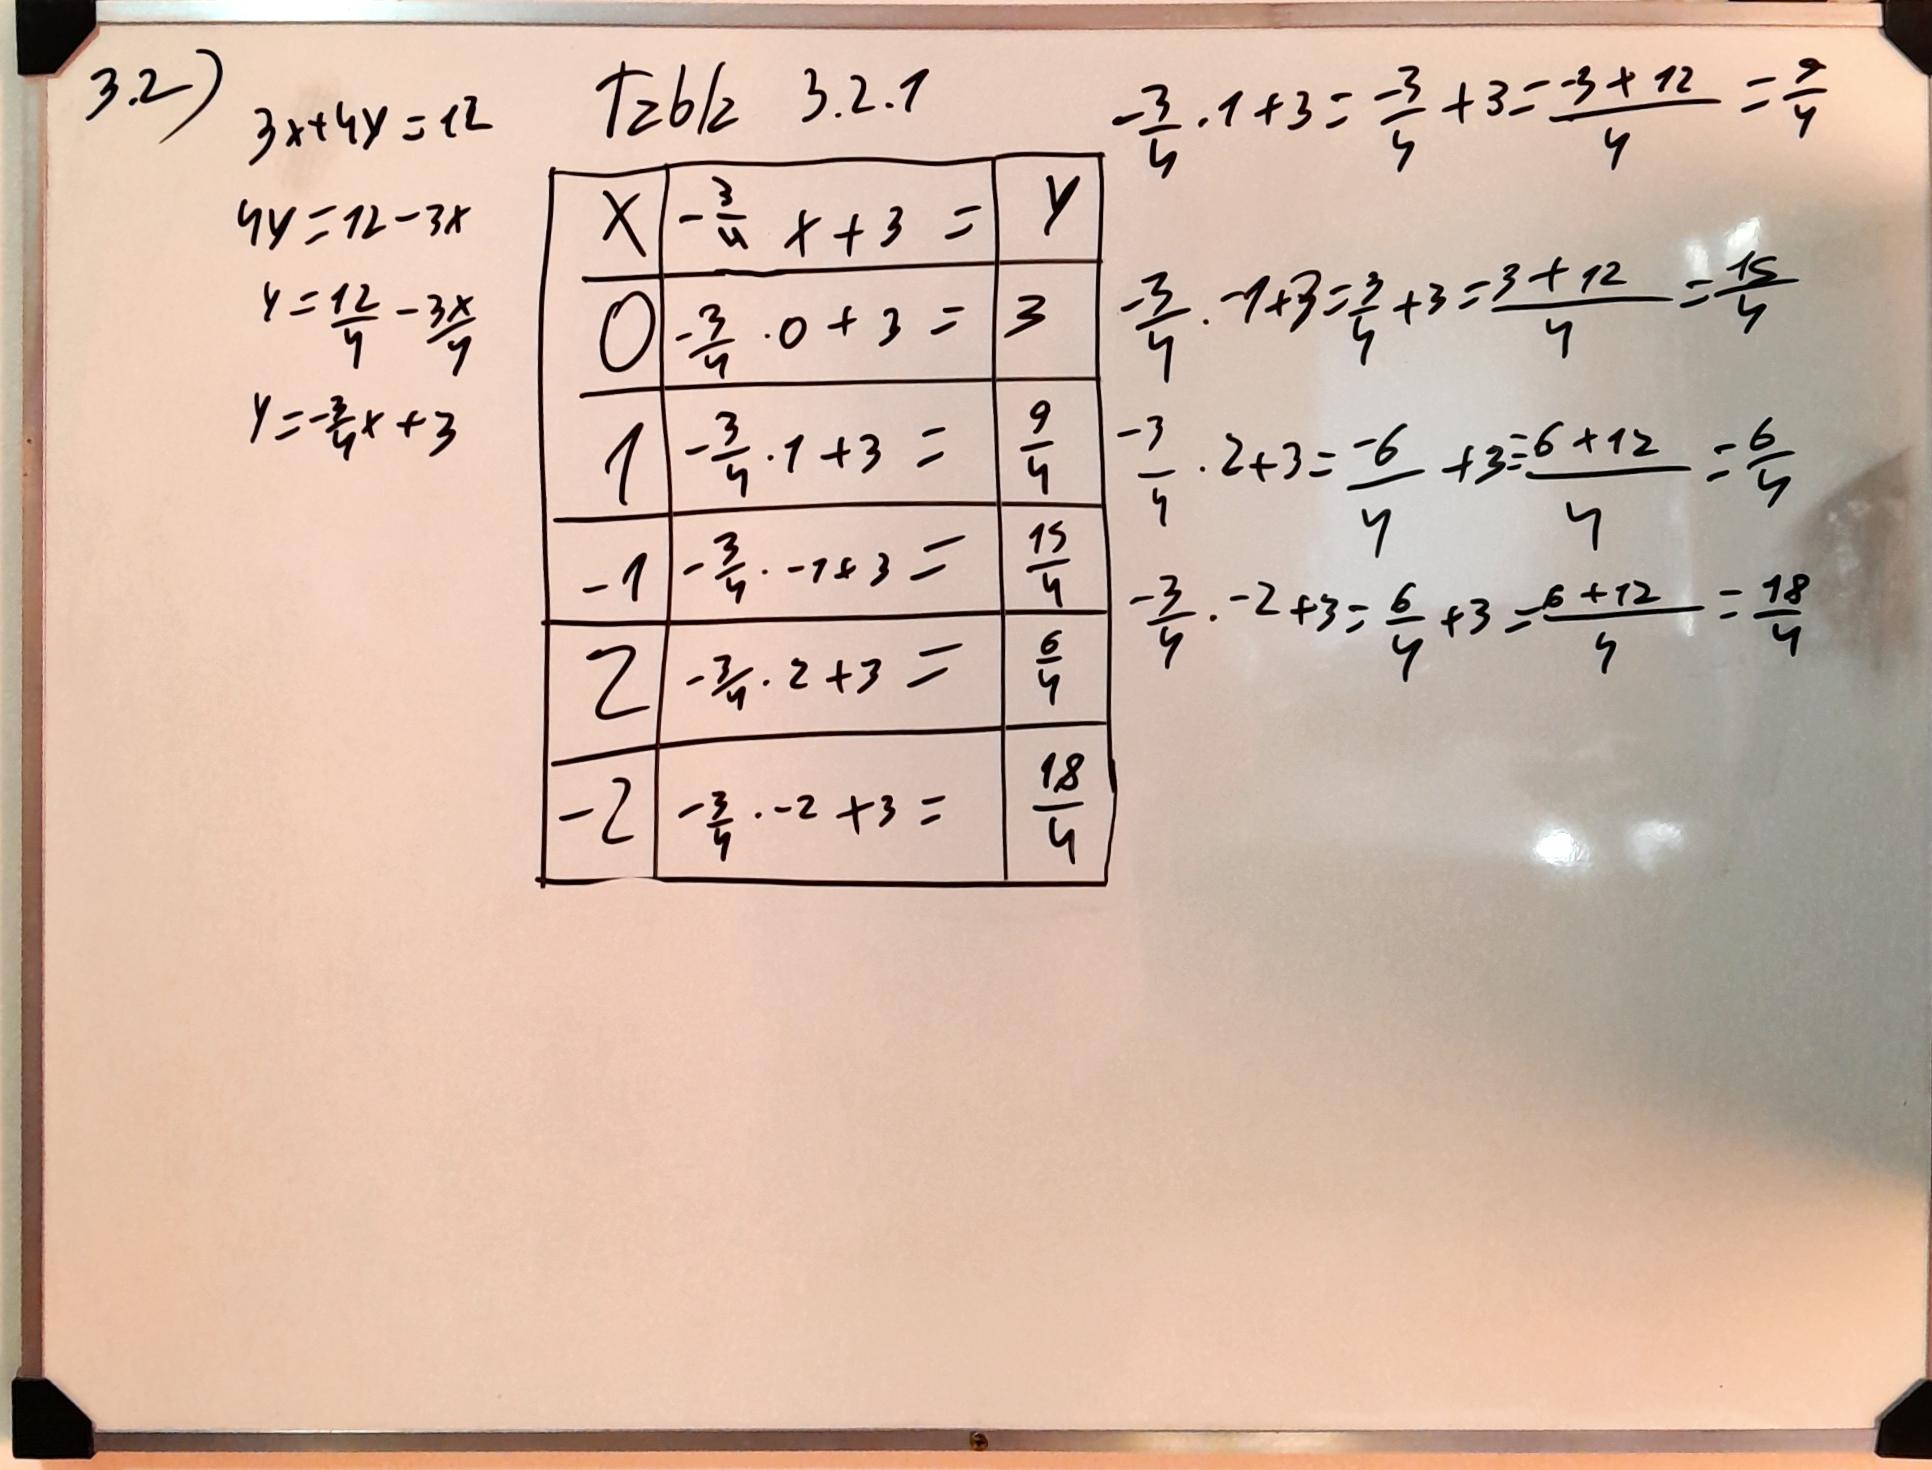 3.2)
3x+4y=12
4y=12-3x
y=12/4-3x/4
y=-3/4x+3
Tabla 3.2.1
x | -3/4 x+3= | y
0 | -3/4·0+3= | 3
1 | -3/4·1+3= | 9/4
-1 | -3/4·-1+3= | 15/4
2 | -3/4·2+3= | 6/4
-2 | -3/4·-2+3= | 18/4
-3/4·1+3=-3/4+3=-3+12/4=9/4
-3/4·-1+3=3/4+3=3+12/4=15/4
-3/4·2+3=-6/4+3=-6+12/4=6/4
-3/4·-2+3=6/4+3=6+12/4=18/4